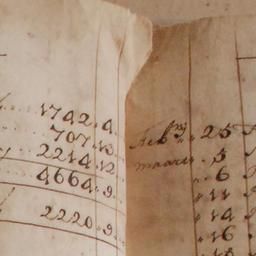 1742.4.
707.13
2214.12
4664.9.
2220.9.
Feb.ry 25
maart . 5
" 6
" 11
" 14
" 16